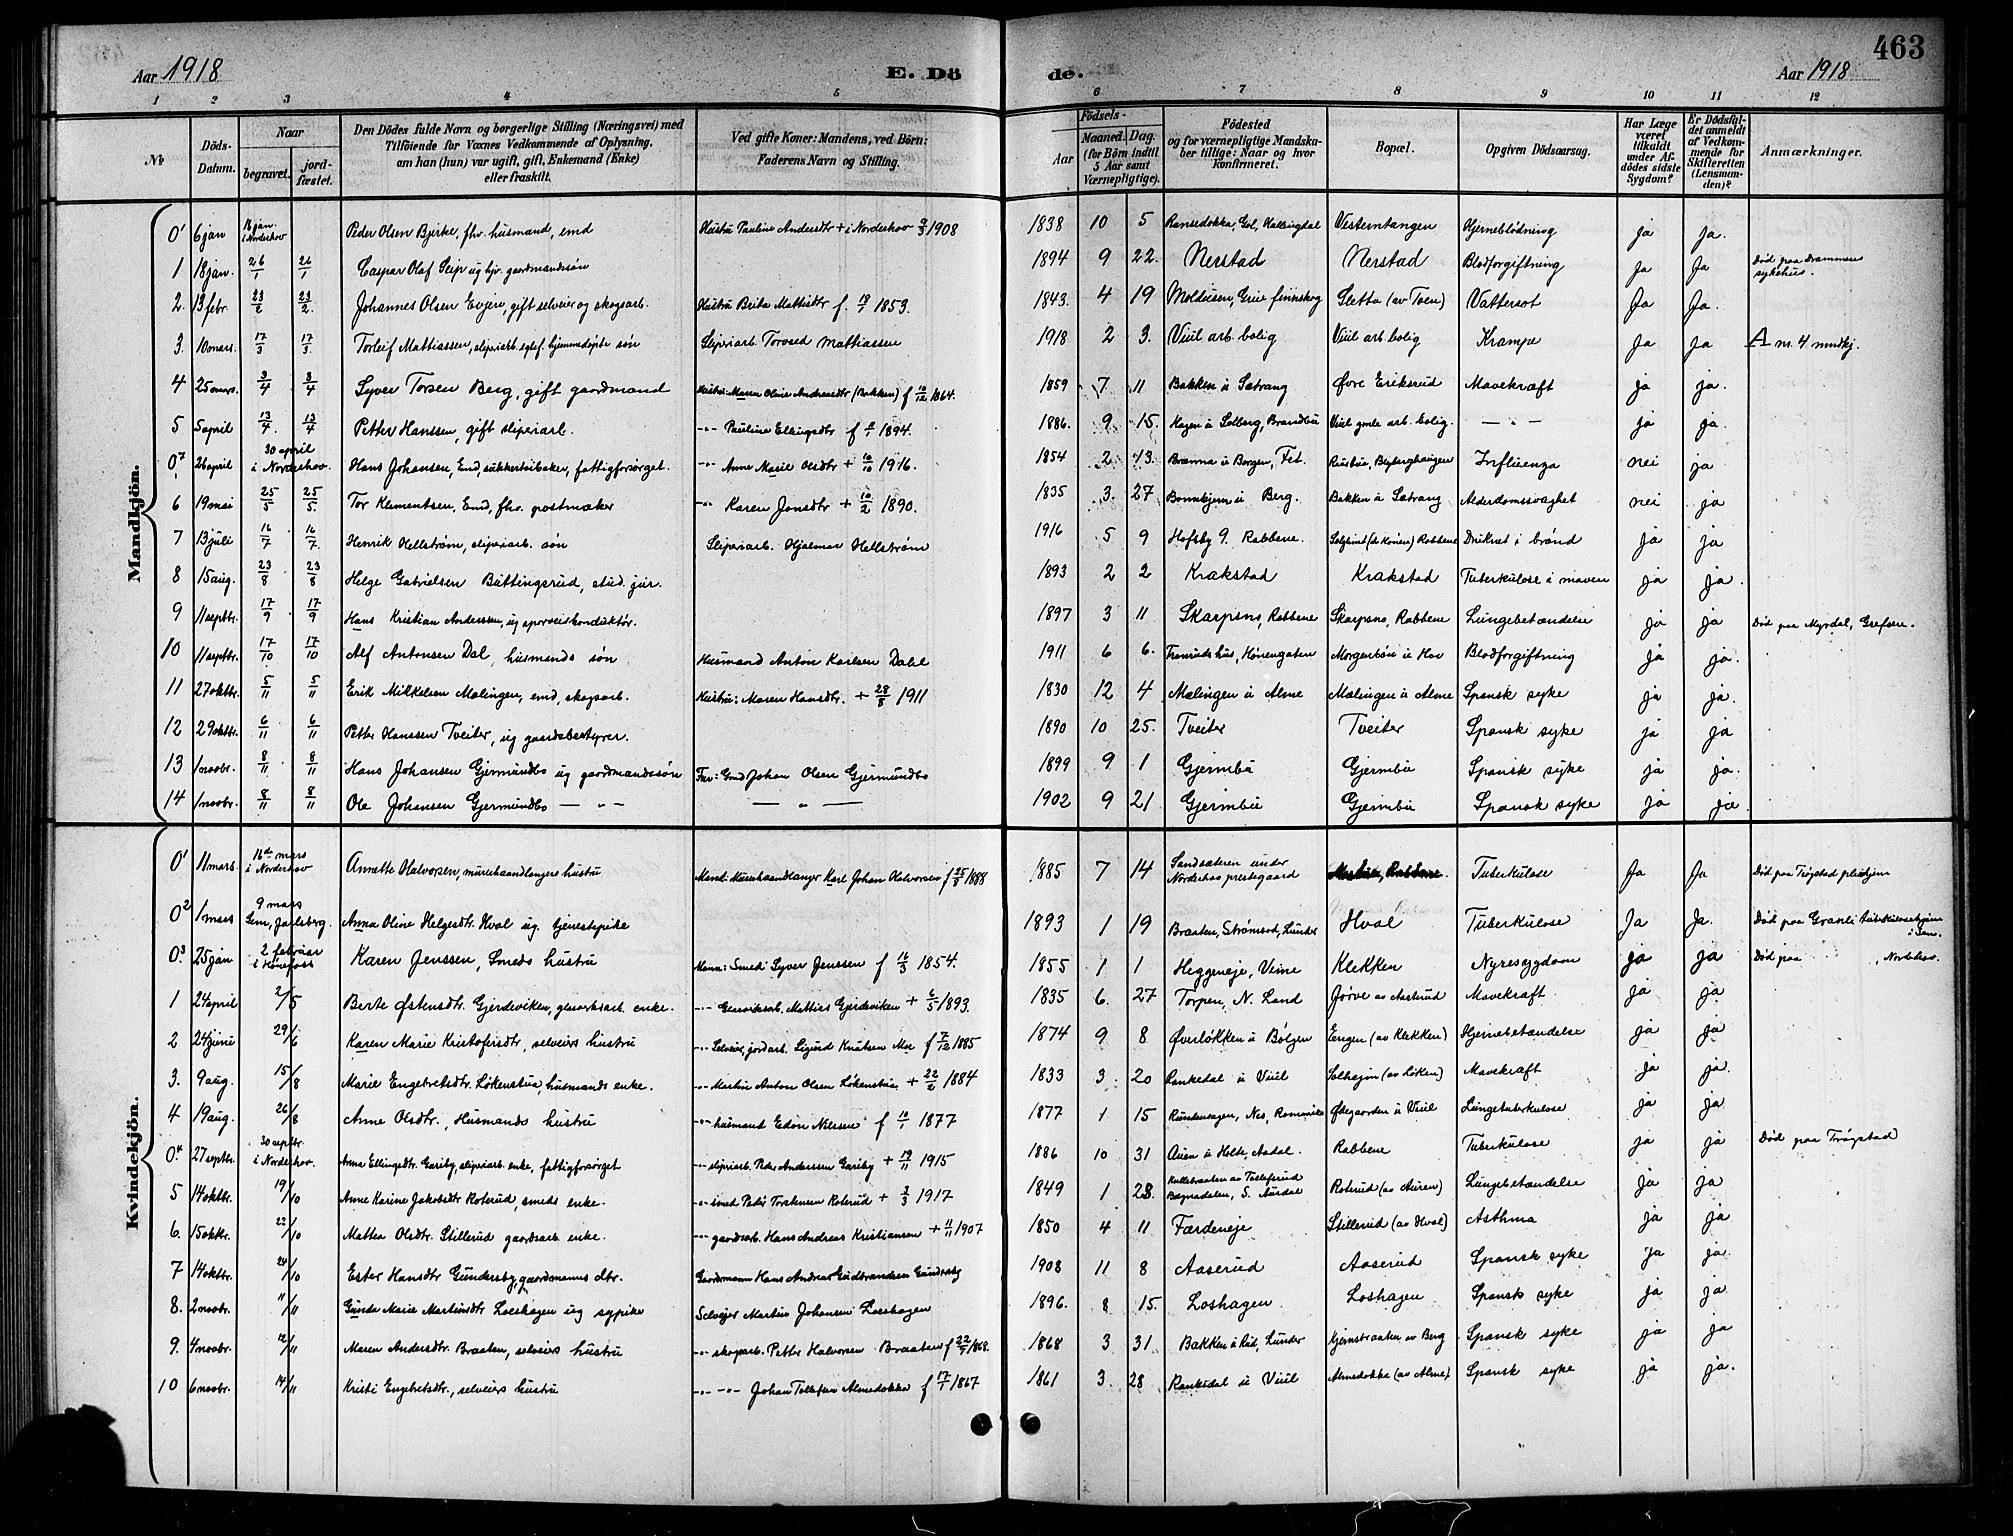 463
Aar 1918
E. Dö
de.
Aar 1918
1 2 3 4 5 6 7 8 9 10 11 12
No
Döds-Datum.
Naar
begravet.
jord-fæstet.
Den Dödes fulde Navn og borgerlige Stilling (Næringsvei) med
Tilföiende for Voxnes Vedkommende af Oplysning,
om han (hun) var ugift, gift, Enkemand (Enke)
eller fraskilt.
Ved gifte Koner: Mandens, ved Börn:
Faderens Navn og Stilling.
Födsels-
Aar
Maaned. Dag.
(for Börn indtil
5 Aar samt
Værnepligtige).
Födested
og for værnepligtige Mandska-
ber tillige: Naar og hvor
konfirmeret.
Bopæl.
Opgiven Dödsaarsag.
Har Læge
været
tilkaldt
under Af-
dödes sidste
Sygdom?
Er Dödsfal-
det anmeldt
af Vedkom-
mende for
Skifteretten
(Lensman-
den)?
Anmærkninger.
Mandkjön.
0¹ 6 jan 16 jan. i Norderhov Peder Olsen Bjerke, fhv. husmand, emd Hustru Pauline Andersdtr + i Norderhov 9/3 1908 1838 10 5 Gol, Hallingdal Vesterntangen Hjerneblödning ja ja.
1 18 jan. 26/1 26/1 Caspar Olaf Seip ug hjv. gaardmandssön 1894 9 22. Nerstad Nerstad Blodforgiftning Ja Ja Död paa Drammens sykehus.
2. 13 febr. 23/2 23/2. Johannes Olsen Evjen, gift selveier og skogsarb. Hustru Brita Mattisdtr f. 1853. 1843. 4 19 Grue finnskog Sletta (av Toen) Vattersot Ja Ja.
3. 10 mars. 17/3 17/3. Torleif Mathiassen, sliperiarb. hjemmedöpte sön Sliperiarb. Mathiassen 1918 2 3. Viul arb. bolig Viul arb. bolig Krampe Ja Ja A nr. 4 mndkj.
4 25 mars. 3/4 3/4 Syver Torsen Berg, gift gaardmand Hustru Maren Oline Andersdtr (Bakken) f 12/12 1864. 1859 7 11 Bakken u Satrang Övre Eriksrud Mavekræft ja ja.
5 5 april 13/4. 13/4 Petter Hanssen, gift sliperiarb. -"- Pauline Ellingsdtr f 1894. 1886. 9 15. Hagen u Solberg, Brandbu Viul gmle arb. bolig. — " — ja ja.
0² 26 april 30 april i Norderhov. Hans Johansen, Emd, sukkertöibaker, fattigforsörget. -"- Anne Marie Olsdtr + 10/10 1916. 1854 2 13. Borgen, Fet. Influenza nei ja
6 19 mai 25/5 25/5. Tor Klementsen, Emd, fhv. postmaker -"- Karen Jonsdtr + 10/2 1890. 1835 3. 27 Berg. Bakken u Satrang Alderdomssvaghet nei ja
7 13 juli 16/7 16/7. Henrik Hellström, sliperiarb. sön Sliperiarb. Hjalmar Hellström 1916 5 9 Hofsby 9. Rabbene. Rabbene Druknet i brönd Ja ja
8 15 aug. 23/8 23/8 Helge Gabrielsen Buttingsrud, stud. jur. 1893 2 2 Krakstad Krakstad Tuberkulose i maven ja ja.
9 11 septbr. 17/9 17/9 Hans Kristian Anderssen, ug sporveiskonduktör. 1897 3 11 Skarpsno, Rabbene Skarpsno, Rabbene Lungebetændelse ja ja Död paa Myrdal, Grefsen.
10 11 septbr. 17/10 17/10 Alf Antonsen Dal, husmands sön Husmand Anton Karlsen Dahl 1911 6 6. Hönengaten u Hov Blodforgiftning ja ja.
11 27 oktbr. 5/11 5/11 Erik Mikkelsen Mælingen, emd, skogsarb. Hustru: Maren Hansdtr. + 28/8 1911 1830 12 4 Mælingen u Alme Mælingen u Alme Spansk syke ja ja.
12 29 oktbr. 6/11 6/11 Petter Hanssen Tveiter, ug gaardsbestyrer. 1890 10 25. Tveiter Tveiter Spansk syke ja ja
13 1 novbr. 8/11 8/11 Hans Johansen Gjermundbo ug gaardmandssön Far: Gmd Johan Olsen Gjermundbo 1899 9 1 Gjermbu Gjermbu Spansk syke ja ja.
14 1 novbr. 8/11 8/11 Ole Johansen Gjermundbo — " — — " — 1902 9 21 Gjermbu Gjermbu Spansk syke ja ja
Kvindekjön.
0¹ 11 mars 16de mars i Norderhov Annette Halvorsen, murerhaandlangers hustru Mand: Murerhaandlanger Karl Johan Halvorsen f 25/8 1888 1885 7 14 Sandsæteren under Norderhov prestegaard Tuberkulose Ja Ja Död paa Trögstad pleiehjem
0² 1 mars 9 mars Sem, Jarlsberg. Anna Oline Helgesdtr. Hval ug. tjenestepike 1893 1 19 Braaten, Strömsod, Lunder Hval Tuberkulose Ja Ja. Död paa Granli tuberkulosehjem i Sem.
0³. 25 jan 2 februar i Hönefoss Karen Jenssen, Smeds hustru Mann: Smed Syver Jenssen f 16/3 1854. 1855 1 1 Heggeneje, Veme Klekken Nyresygdom ja ja Död paa , Norderhov.
1 24 april 2/5 Berte Östensdtr. Gjerdeviken, glasverksarb. enke. -"- Glasverksarb. Mattias Gjerdeviken + 6/5 1893. 1835 6. 27 Torpen, N. Land Mavekræft ja ja
2 24 juni 29/6 Karen Marie Kristofersdtr, selveiers hustru -"- Selveier, jordarb. Sigurd Knutsen Moe f 7/12 1885 1874 9 8 Överlökken u Bölgen Engen (av Klekken) Hjernebetændelse ja ja
3. 9 aug. 15/8 Marie Engebretsdtr. Lökenstua, husmands enke. Anton Olsen Lökenstua + 22/2 1884 1833 3 20 Rankedal u Viul (av Löken) Mavekræft ja ja.
4 19 aug. 26/8 Anne Olsdtr., Husmands hustru -"- husmand Edon Nilssen f 1877 1877 1 15 Nes, Romerike Ödegaarden u Viul Lungetuberkulose ja ja
0⁴ 27 septbr. 30 septbr. i Norderhov. Anna Ellingsdtr. Garsby, sliperiarb. enke, fattigforsörget -"- sliperiarb. Peder Anderssen Garsby + 19/11 1915 1886 10 31 u Holte, Aadal. Rabbene Tuberkulose ja ja Död paa Trögstad
5 14 oktbr. 19/10 Anne Karine Jakobsdtr Roterud, smeds enke. -"- smed Peder Roterud + 3/3 1917 1849 1 28. Begnadalen, S. Aurdal Roterud (av Auren) Lungebetændelse ja ja
6. 15 oktbr. 22/10 Mathea Olsdtr. Stillerud gaardsarb. enke. -"- gaardsarb. Hans Andreas Kristiansen + 11/11 1907 1850 4 11 Færdeneje Stillerud (av Hval) Asthma ja ja
7 14 oktbr. 24/10 Ester Hansdtr Gundersby, gaardmanns dtr. Gaardmann Hans Andreas Gudbrandsen Gundersby 1908 11 8 Aaserud Aaserud Spansk syke ja ja.
8. 2 novbr. 11/11 Gunda Marie Martinsdtr Loeshagen ug sypike Selveier Martin Johansen Loeshagen 1896. 8 15. Loshagen Loshagen Spansk syke ja ja
9. 4 novbr. 12/11 Maren Andersdtr. Braaten, selveiers hustru -"- skogarb. Petter Halvorsen Braaten f 22/7 1868. 1868 3 31 Bakken u Rud, Lunder av Berg Spansk syke ja ja
10 6 novbr. 14/11 Kristi Engebretsdtr., selveiers hustru -"- -"- Johan Tollefsen Almedokka f 17/1 1867 1861 3. 28 Rankedal u Viul Almedokka (av Alme) Spansk syke ja ja.